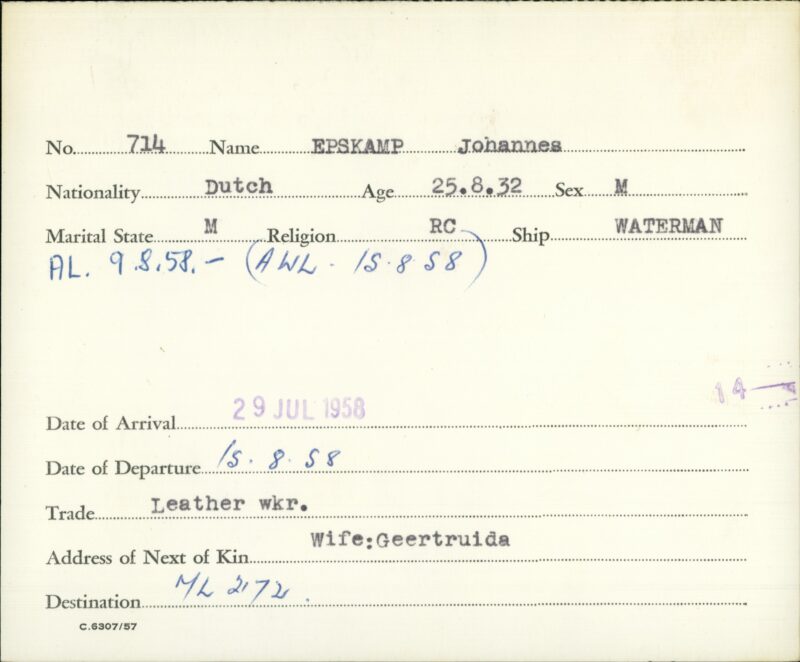 No. 714 Name EPSKAMP Johannes
Nationality Dutch Age 25.8.32 Sex M
Marital State M Religion RC Ship WATERMAN
AL. 9.8.58. – (AWL. 15.8 58)
14
Date of Arrival 29 JUL 1958
Date of Departure 15. 8. 58
Trade Leather wkr.
Address of Next of Kin Wife:Geertruida
Destination ML 2172.
C.6307/57